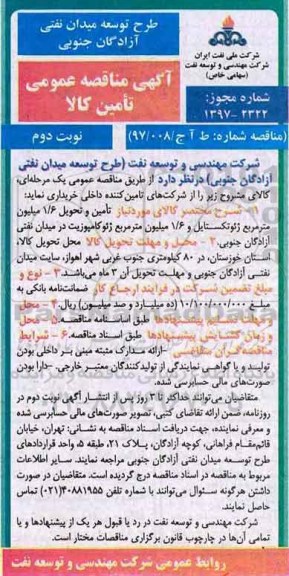 طرح توسعه میدان نفتی
آزادگان جنوبی
شرکت ملی نفت ایران
شرکت مهندسی و توسعه نفت
(سهامی خاص)
آگهی مناقصه عمومی
تأمین کالا
شماره مجوز:
۱۳۹۷- ۲۳۲۲
(مناقصه شماره: ط آ ج/۹۷/۰۰۸)
نوبت دوم
شرکت مهندسی و توسعه نفت (طرح توسعه میدان نفتی
آزادگان جنوبی) درنظر دارد از طریق مناقصه عمومی یک مرحله‌ای،
کالای مشروح زیر را از شرکت‌های تامین‌کننده داخلی خریداری نماید:
۱- شرح مختصر کالای موردنیاز تأمین و تحویل ۱/۶ میلیون
مترمربع ژئوتکستایل و ۱/۶ میلیون مترمربع ژئوکامپوزیت در میدان نفتی
آزادگان جنوبی. ۲- محل و مهلت تحویل کالا محل تحویل کالا،
استان خوزستان، در ۸۰ کیلومتری جنوب غربی شهر اهواز، سایت میدان
نفتی آزادگان جنوبی و مهلت تحویل آن ۳ ماه می‌باشد. ۳- نوع و
مبلغ تضمین شرکت در فرایند ارجاع کار ضمانت‌نامه بانکی به
مبلغ ۱۰/۱۰۰/۰۰۰/۰۰۰ (ده میلیارد و صد میلیون) ریال. ۴- محل
و مهلت تسلیم پیشنهادها طبق اسناد مناقصه. ۵- محل
و زمان گشایش پیشنهادها طبق اسناد مناقصه. ۶- شرایط
مناقصه گران متقاضی -ارائه مدارک مثبته مبنی بر داخلی بودن
تولید و یا گواهی نمایندگی از تولیدکنندگان معتبر خارجی -دارا بودن
صورت‌های مالی حسابرسی شده.
متقاضیان می‌توانند حداکثر تا ۳ روز پس از انتشار آگهی نوبت دوم در
روزنامه، ضمن ارائه تقاضای کتبی، تصویر صورت‌های مالی حسابرسی شده
و معرفی نماینده، جهت دریافت اسناد مناقصه به نشانی: تهران، خیابان
قائم‌مقام فراهانی، کوچه آزادگان، پلاک ۲۱، طبقه ۵، واحد قراردادهای
طرح توسعه میدان نفتی آزادگان جنوبی مراجعه نمایند. سایر اطلاعات
مربوط به مناقصه در اسناد مناقصه درج گردیده است. متقاضیان در صورت
داشتن هرگونه سئوال می‌توانند با شماره تلفن ۴۰۸۸۱۹۵۵(۰۲۱) تماس
حاصل نمایند.
شرکت مهندسی و توسعه نفت در رد یا قبول هر یک از پیشنهادها و یا
تمامی آن‌ها در چارچوب قانون برگزاری مناقصات مختار است.
روابط عمومی شرکت مهندسی و توسعه نفت